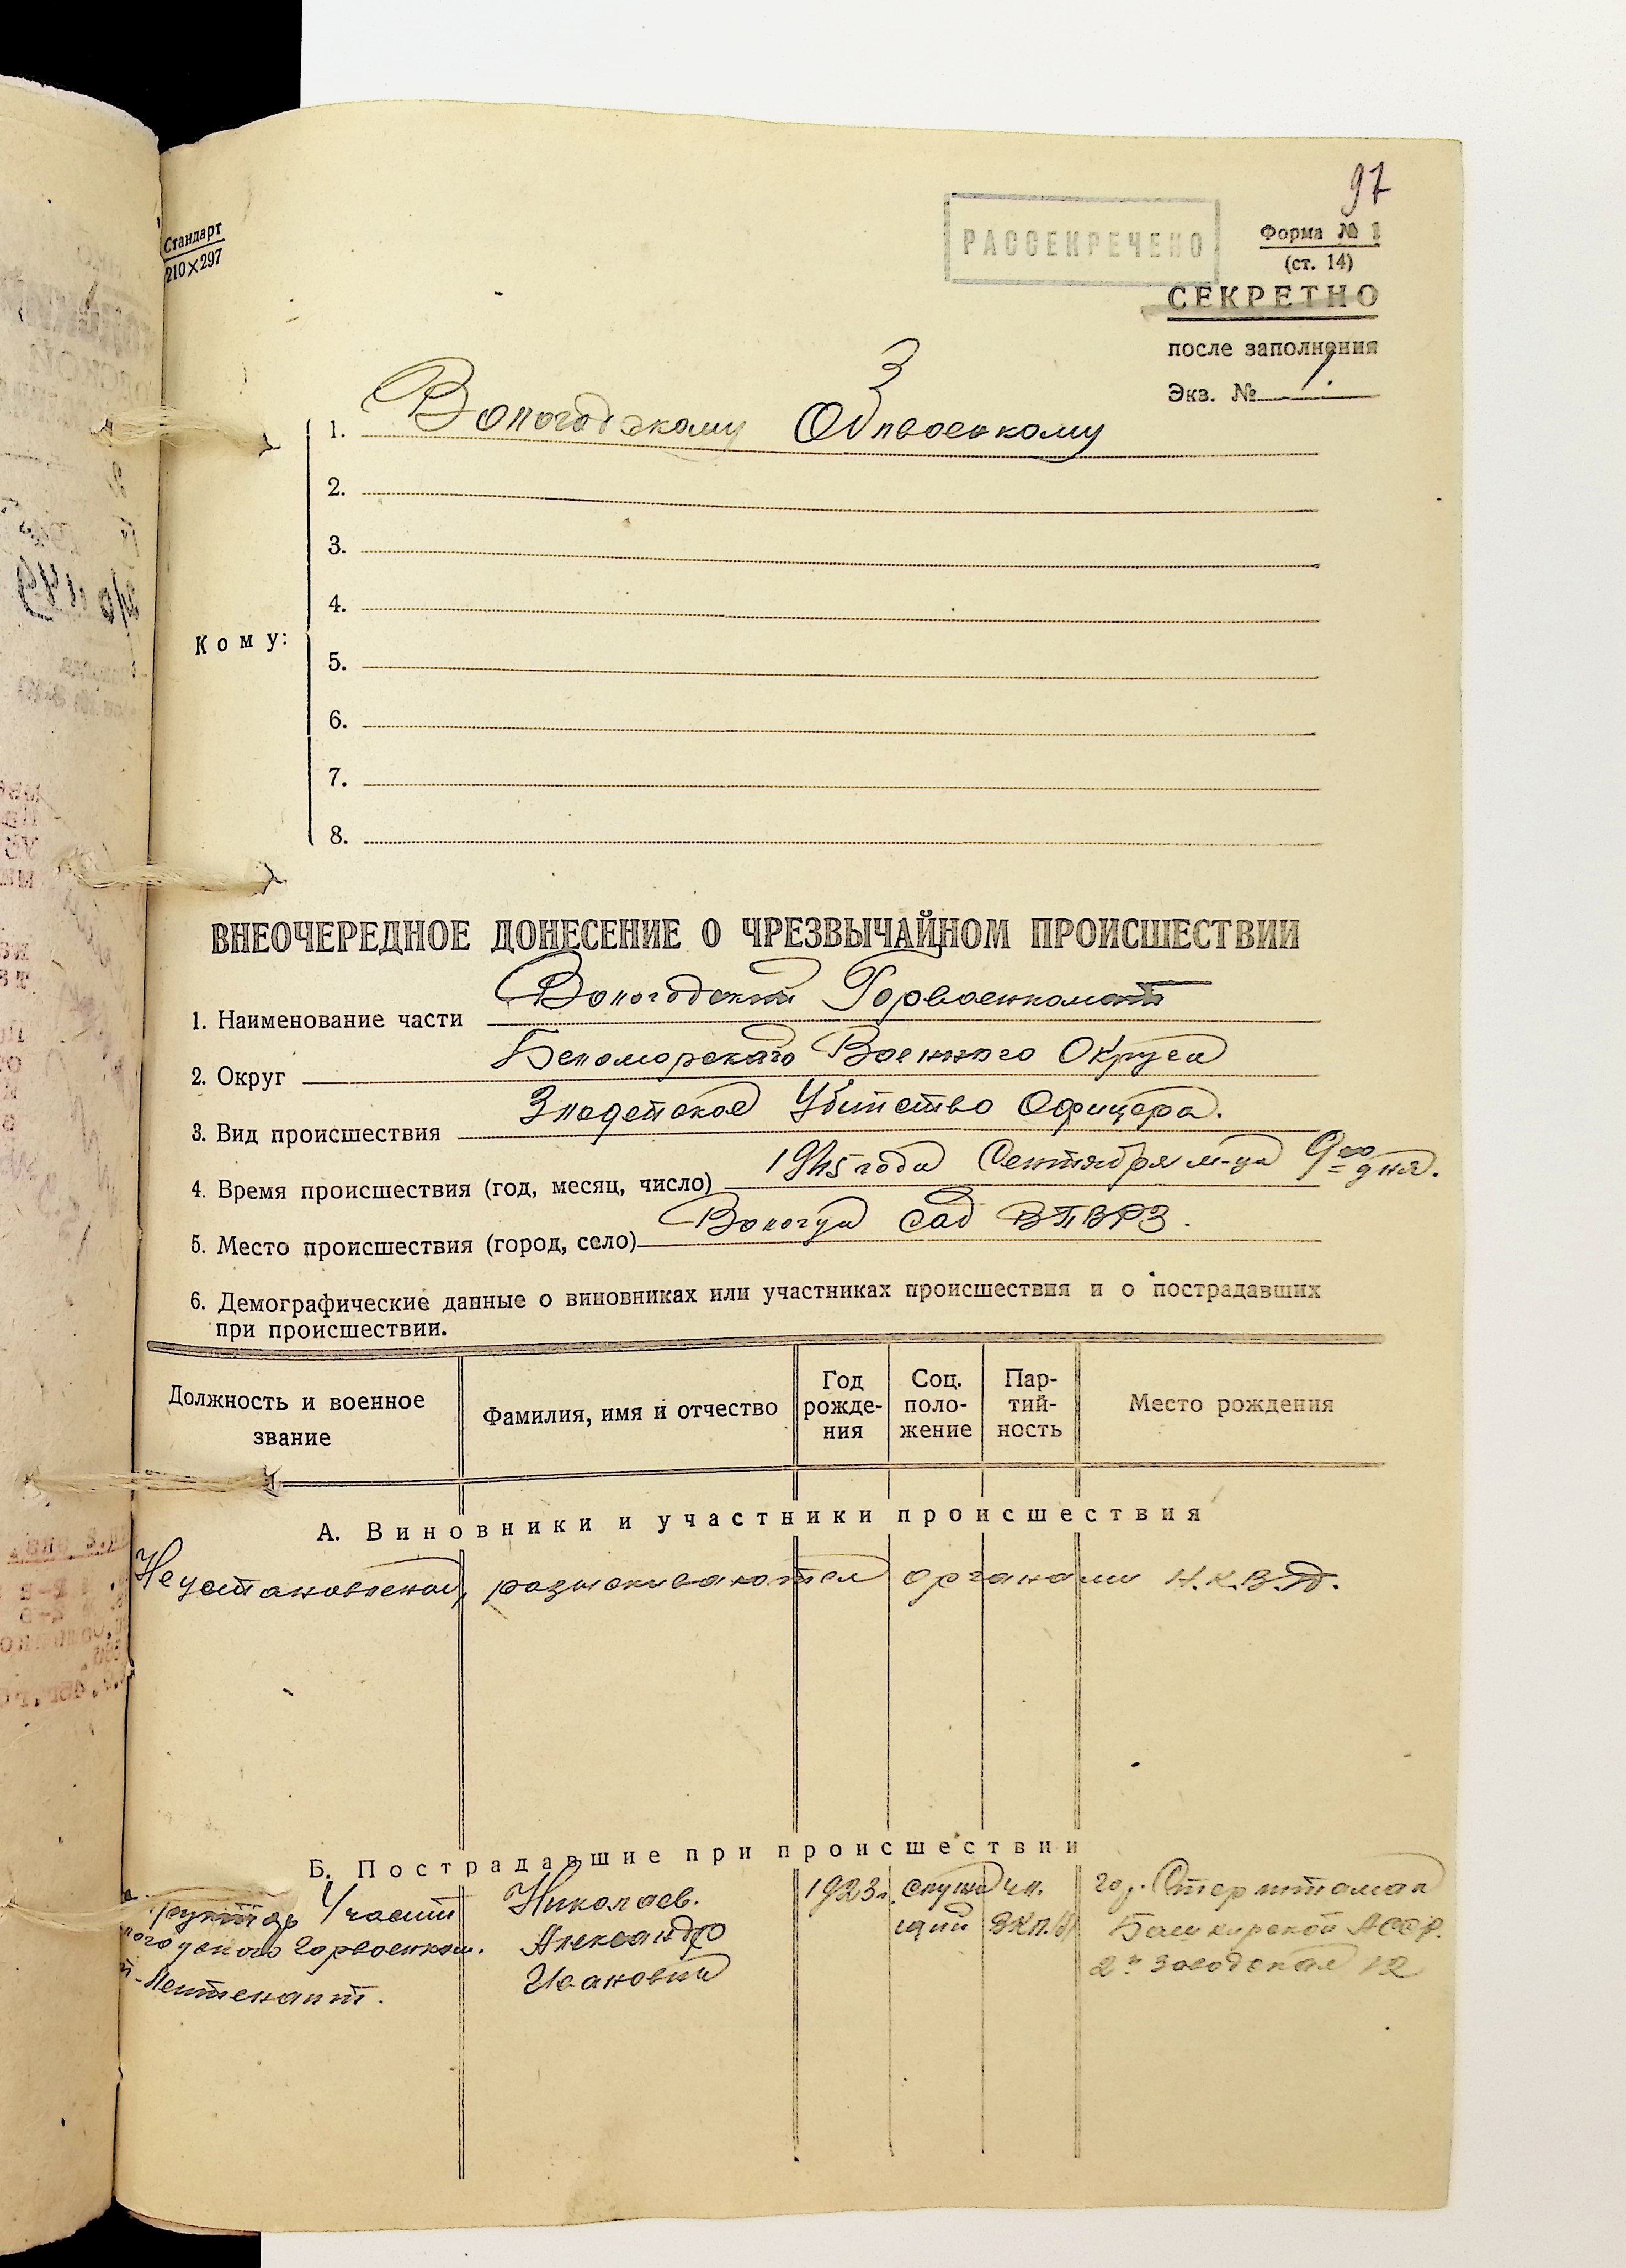 97
Стандарт
210×297
РАССЕКРЕЧЕНО
Форма № 1
(ст. 14)
СЕКРЕТНО
после заполнения
Экз. № 1.
3
Кому:
1. Вологодскому Облвоенкому
2.
3.
4.
5.
6.
7.
8.
ВНЕОЧЕРЕДНОЕ ДОНЕСЕНИЕ О ЧРЕЗВЫЧАЙНОМ ПРОИСШЕСТВИИ
1. Наименование части Вологодский Горвоенкомат
2. Округ Беломорского Военного Округа
3. Вид происшествия Злодейское Убийство Офицера.
4. Время происшествия (год, месяц, число) 1945 года Сентября м-ца 9го дня.
5. Место происшествия (город, село) Вологда Сад ВПВРЗ.
6. Демографические данные о виновниках или участниках происшествия и о пострадавших
при происшествии.
Должность и военное звание
Фамилия, имя и отчество
Год рожде-ния
Соц. поло-жение
Пар-тий-ность
Место рождения
А. Виновники и участники происшествия
Неустановлены, разыскиваются органами Н.К.В.Д.
Б. Пострадавшие при происшествии
Участ Николаев. 1923 г. служа чл. гор. Стерлитамак
горвоенком. Александр щий ВКП(б) Башкирской АССР.
Лейтенант. Иванович 2я Заводская 12